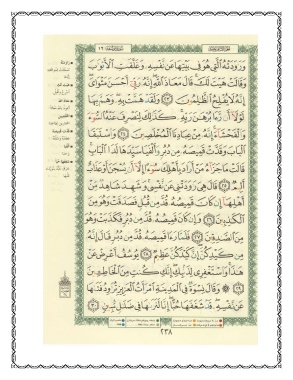 وَرَٰوَدَتْهُ ٱلَّتِى هُوَ فِى بَيْتِهَا عَن نَّفْسِهِۦ وَغَلَّقَتِ ٱلْأَبْوَٰبَ
وَقَالَتْ هَيْتَ لَكَ ۚ قَالَ مَعَاذَ ٱللَّهِ ۖ إِنَّهُۥ رَبِّىٓ أَحْسَنَ مَثْوَاىَ ۖ
إِنَّهُۥ لَا يُفْلِحُ ٱلظَّٰلِمُونَ ٢٣ وَلَقَدْ هَمَّتْ بِهِۦ ۖ وَهَمَّ بِهَا
لَوْلَآ أَن رَّءَا بُرْهَٰنَ رَبِّهِۦ ۚ كَذَٰلِكَ لِنَصْرِفَ عَنْهُ ٱلسُّوٓءَ
وَٱلْفَحْشَآءَ ۚ إِنَّهُۥ مِنْ عِبَادِنَا ٱلْمُخْلَصِينَ ٢٤ وَٱسْتَبَقَا
ٱلْبَابَ وَقَدَّتْ قَمِيصَهُۥ مِن دُبُرٍ وَأَلْفَيَا سَيِّدَهَا لَدَا ٱلْبَابِ ۚ
قَالَتْ مَا جَزَآءُ مَنْ أَرَادَ بِأَهْلِكَ سُوٓءًا إِلَّآ أَن يُسْجَنَ أَوْ عَذَابٌ
أَلِيمٌ ٢٥ قَالَ هِىَ رَٰوَدَتْنِى عَن نَّفْسِى ۚ وَشَهِدَ شَاهِدٌ مِّنْ
أَهْلِهَآ إِن كَانَ قَمِيصُهُۥ قُدَّ مِن قُبُلٍ فَصَدَقَتْ وَهُوَ مِنَ
ٱلْكَٰذِبِينَ ٢٦ وَإِن كَانَ قَمِيصُهُۥ قُدَّ مِن دُبُرٍ فَكَذَبَتْ وَهُوَ
مِنَ ٱلصَّٰدِقِينَ ٢٧ فَلَمَّا رَءَا قَمِيصَهُۥ قُدَّ مِن دُبُرٍ قَالَ إِنَّهُۥ
مِن كَيْدِكُنَّ ۖ إِنَّ كَيْدَكُنَّ عَظِيمٌ ٢٨ يُوسُفُ أَعْرِضْ عَنْ
هَٰذَا ۚ وَٱسْتَغْفِرِى لِذَنۢبِكِ ۖ إِنَّكِ كُنتِ مِنَ ٱلْخَاطِـِٔينَ
٢٩ وَقَالَ نِسْوَةٌ فِى ٱلْمَدِينَةِ ٱمْرَأَتُ ٱلْعَزِيزِ تُرَٰوِدُ فَتَىٰهَا
عَن نَّفْسِهِۦ ۖ قَدْ شَغَفَهَا حُبًّا ۖ إِنَّا لَنَرَىٰهَا فِى ضَلَٰلٍ مُّبِينٍ ٣٠
٢٣٨